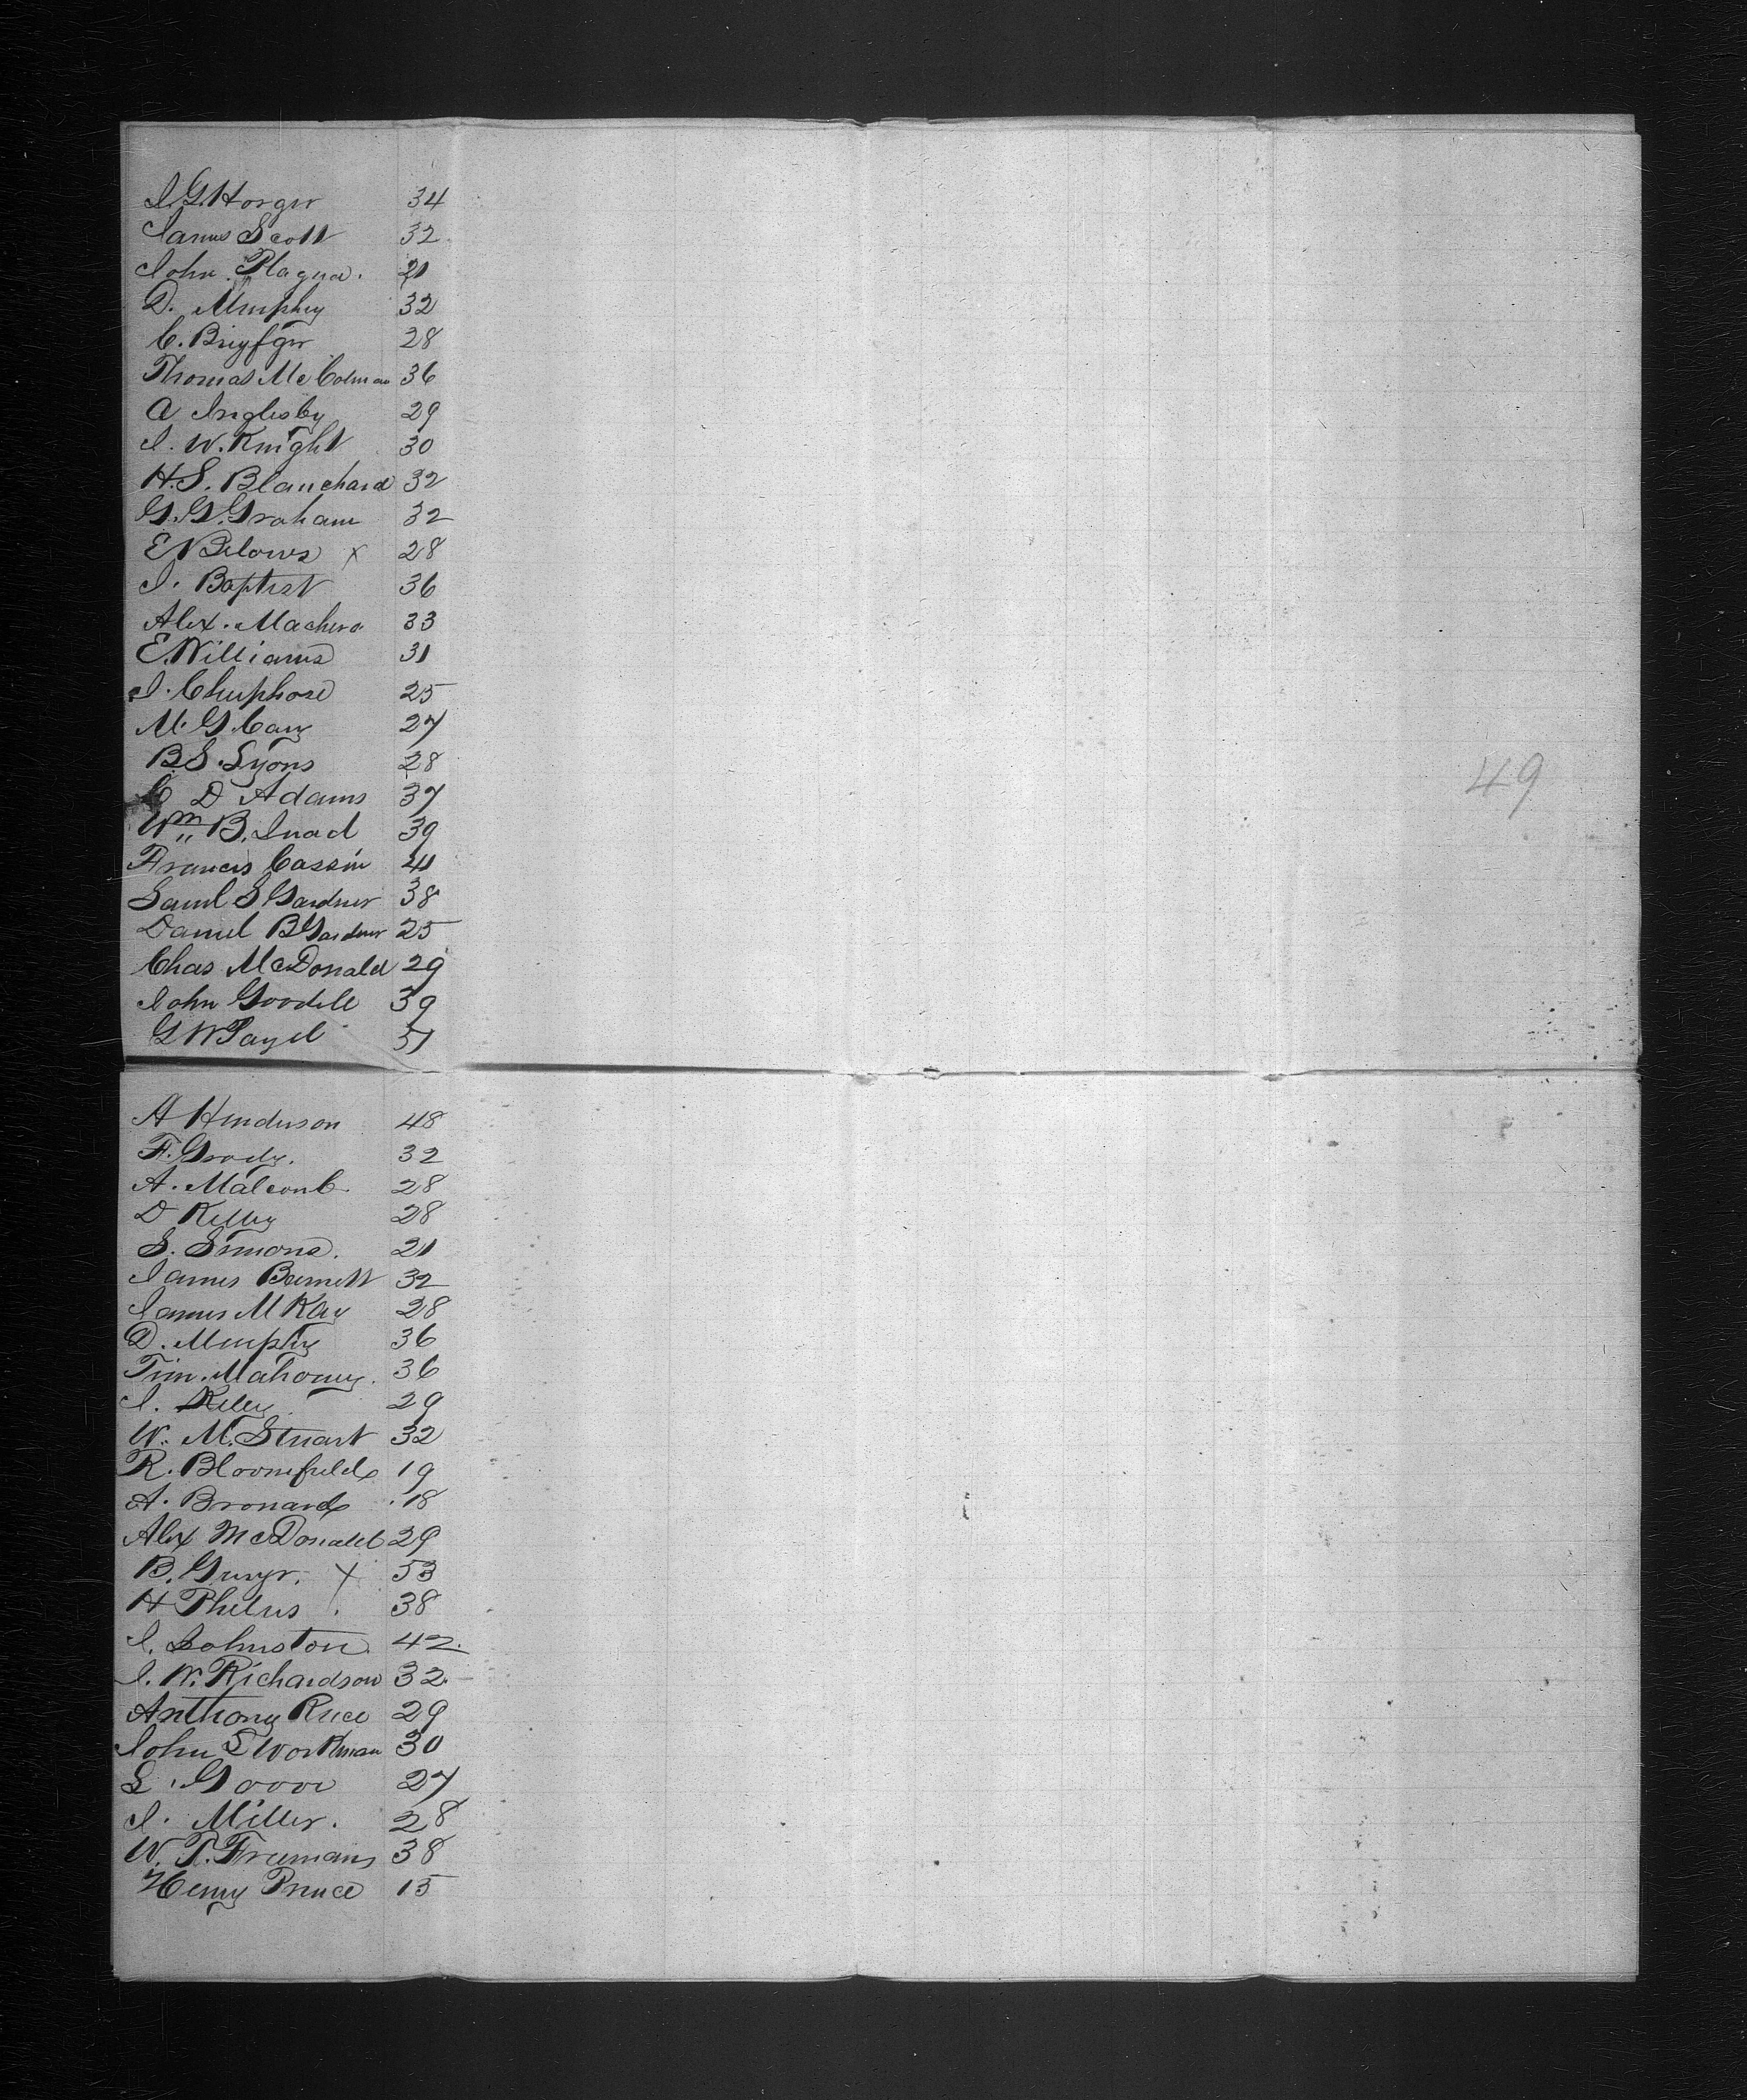 J. G. Horger 34
James Scott 32
John Plagua. 21
D. Murphey 32
C. 28
Thomas McColman 36
A Inglesby 29
J. W. Knight 30
H. S. Blanchard 32
G. G. Graham 32
E Belows x 28
J. Baptist 36
Alex. Machero 33
E. Williams 31
J. Cluphose 25
M. G. Cary 27
B. S. Lyons 28
C D Adams 37
49
Wm B. Snad 39
Francis Cassin 41
Saml S Gardner 38
Daniel B Gardner 25
Chas McDonald 29
John Goodell 39
G W Payel 51
A Henderson 48
F. Grady. 32
A. Malcomb 28
D Kelley 28
S. Simons. 21
James Barnett 32
James M Kay 28
D. Murphy 36
Tim. Mahoney. 36
J. Kelly 29
W. M. Stuart 32
R. Bloomfield 19
A. Bronard 18
Alex McDonald 29
B. Greyr. x 53
H Phelps 38
J. Johnston. 42.
J. W. Richardson 32.
Anthony Rice 29
John S Workman 30
L. Goove 27
J. Miller. 28
W. P. Freemans 38
Henry Prince 15